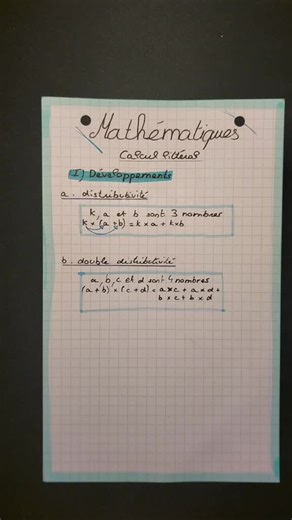 Mathématiques
Calcul littéral
I) Développements
a. distributivité
k, a et b sont 3 nombres
k × (a + b) = k × a + k × b
b. double distributivité
a, b, c et d sont 4 nombres
(a + b) × (c + d) = a × c + a × d +
b × c + b × d